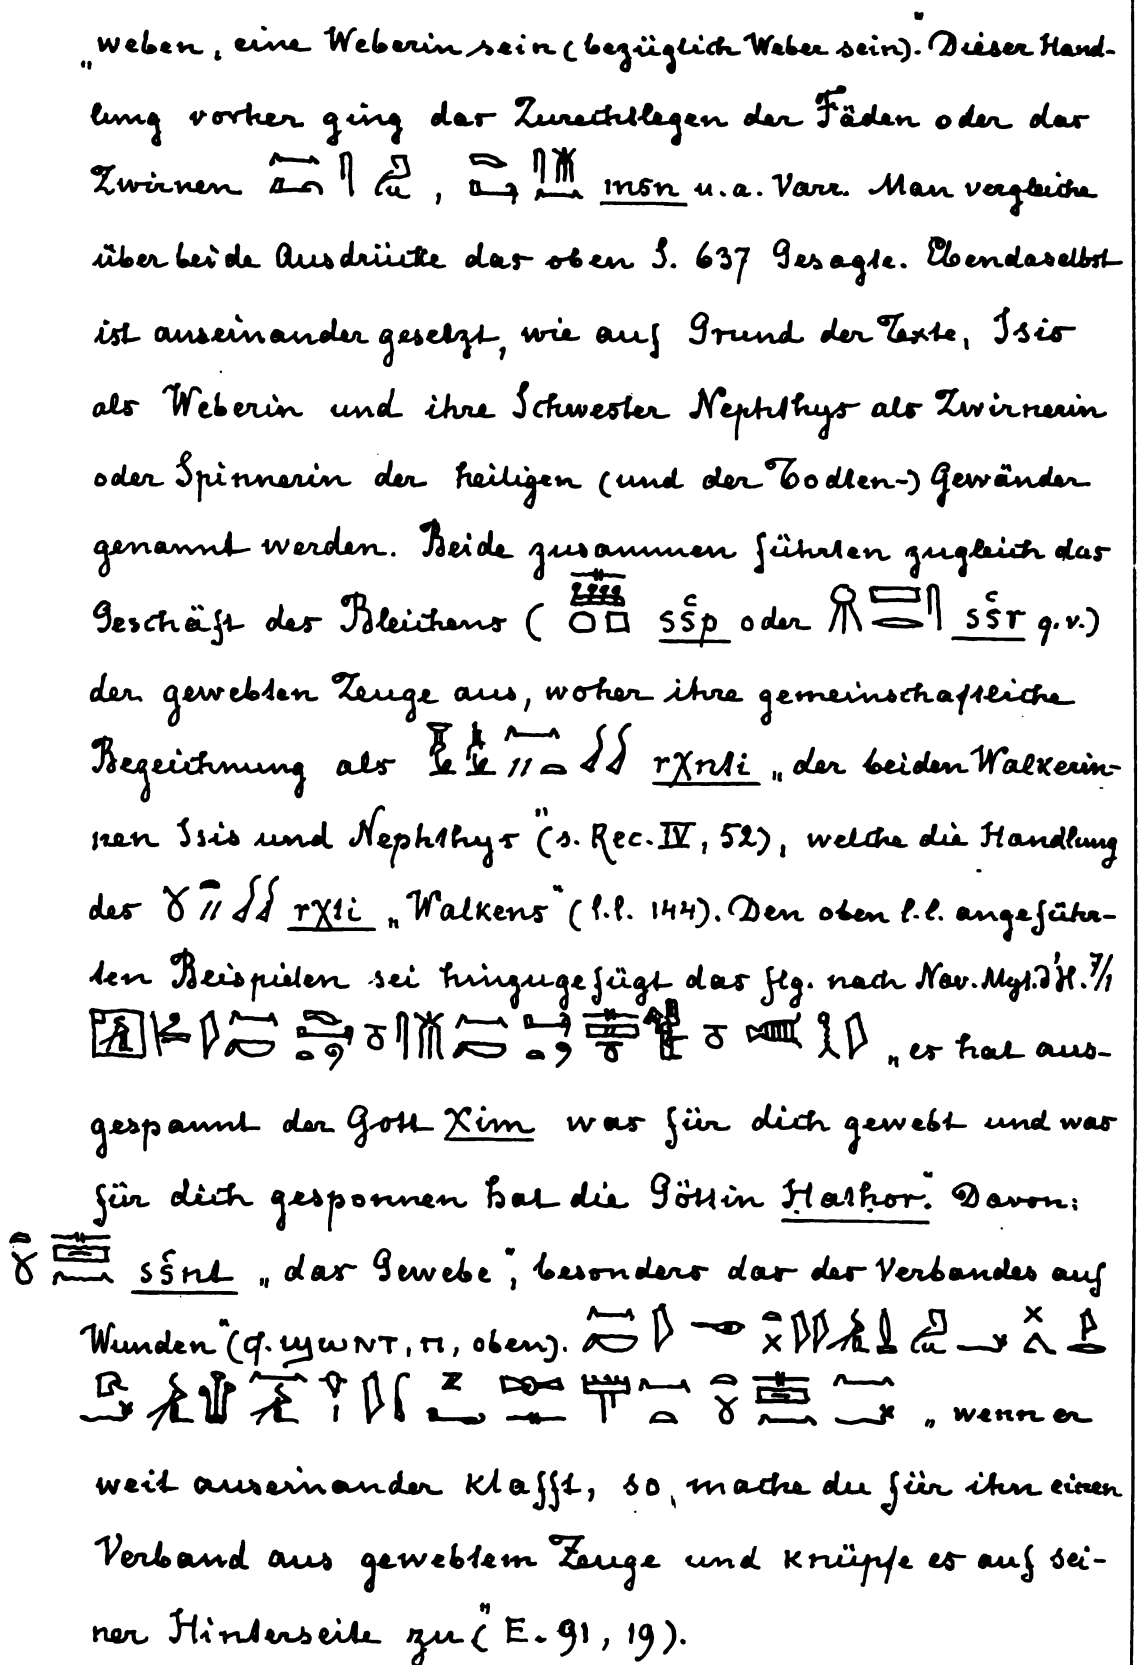 „weben, eine Weberin sein (bezüglich Weber sein)." Dieser Hand-
lung vorher ging das Zurechtlegen der Fäden oder das
Zwirnen , msn u.a. Varr. Man vergleiche
über beide Ausdrücke das oben S. 637 Gesagte. Ebendaselbst
ist auseinander gesetzt, wie auf Grund der Texte, Isis
als Weberin und ihre Schwester Nephthys als Zwirnerin
oder Spinnerin der heiligen (und der Todten-) Gewänder
genannt werden. Beide zusammen führten zugleich das
Geschäft des Bleichens ( sśp oder sśr q.v.)
der gewebten Zeuge aus, woher ihre gemeinschaftliche
Bezeichnung als rχnti „der beiden Walkerin-
nen Isis und Nephthys" (s. Rec. IV, 52), welche die Handlung
des rχti „Walkens" (l.l. 144). Den oben l.l. angeführ-
ten Beispielen sei hinzugefügt das flg. nach Nav. Myt. d'H. 7/1
„es hat aus-
gespannt der Gott Xim was für dich gewebt und was
für dich gesponnen hat die Göttin Hathor." Davon:
sśnt „das Gewebe", besonders das des Verbandes auf
Wunden" (cf. ϣⲱⲛⲧ, π, oben).
„wenn er
weit auseinander klafft, so mache du für ihn einen
Verband aus gewebtem Zeuge und knüpfe es auf sei-
ner Hinterseite zu" (E. 91, 19).